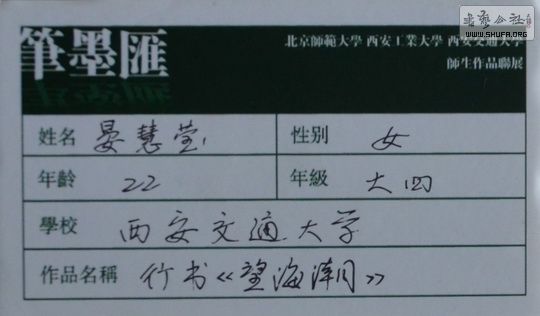 書藝公社
WWW.SHUFA.ORG
筆墨匯
北京師範大學 西安工業大學 西安交通大學
師生作品聯展
姓名 晏慧莹 性別 女
年齡 22 年級 大四
學校 西安交通大学
作品名稱 行书《望海潮》